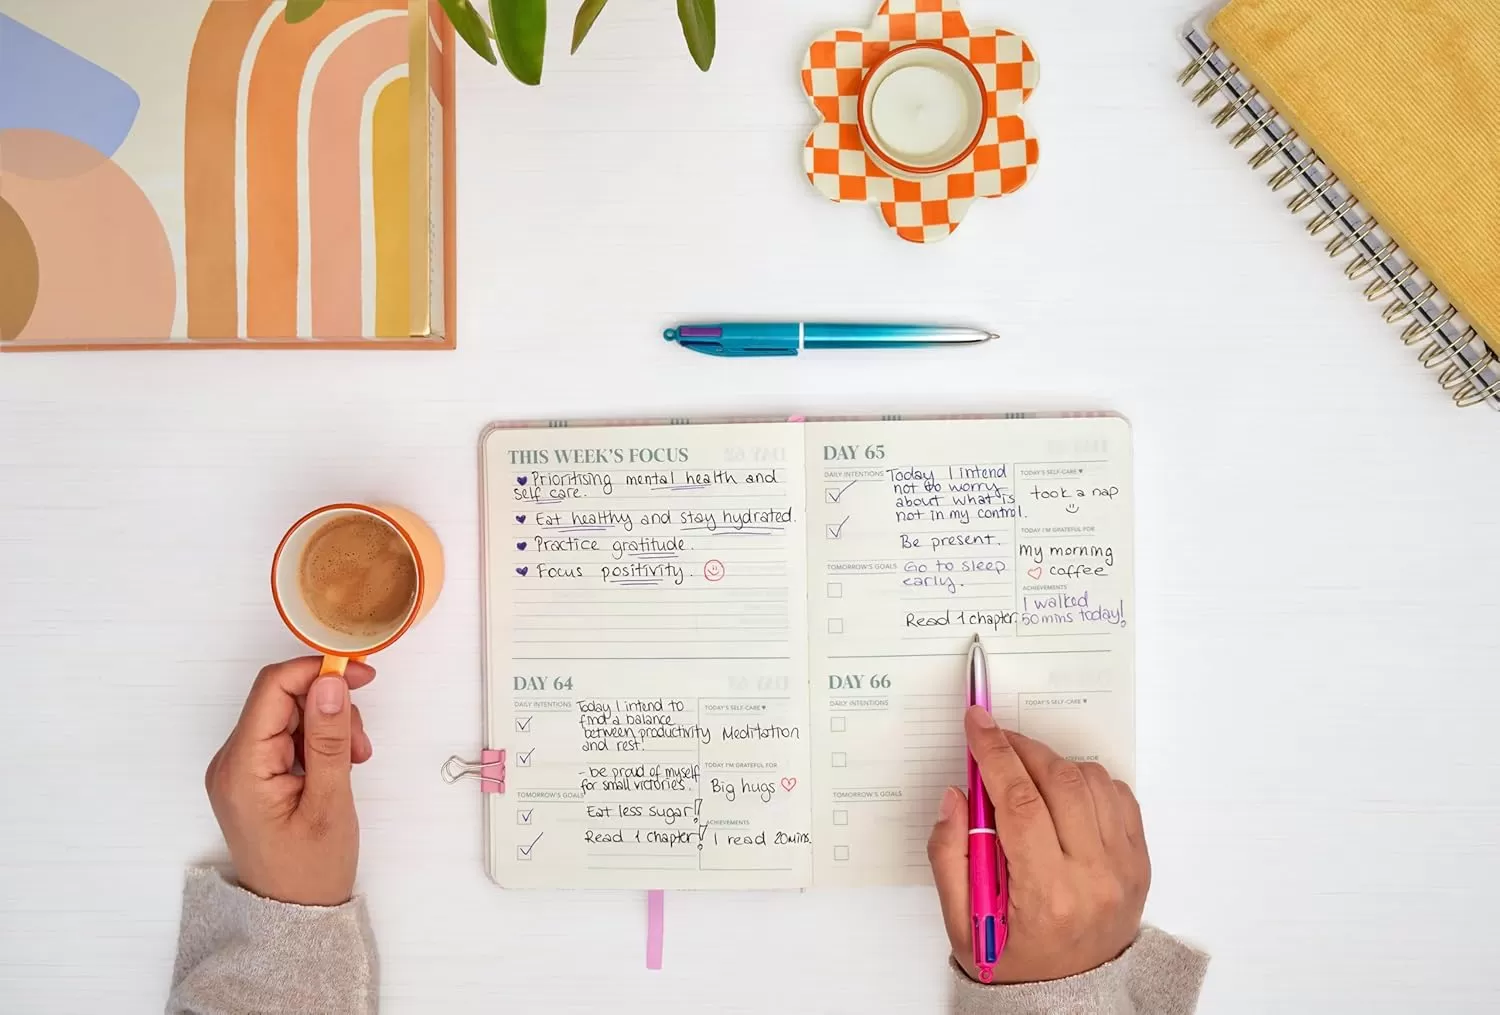 THIS WEEK'S FOCUS
Prioritising mental health and
self care.
Eat healthy and stay hydrated.
Practice gratitude.
Focus positivity.
DAY 64
DAILY INTENTIONS
Today I intend to
find a balance
between productivity
and rest!
- be proud of myself
for small victories.
TOMORROW'S GOALS
Eat less sugar!
Read 1 chapter!
TODAY'S SELF-CARE ♥
Meditation
TODAY I'M GRATEFUL FOR
Big hugs
ACHIEVEMENTS
I read 20mins.
DAY 65
DAILY INTENTIONS
Today I intend
not to worry
about what is
not in my control.
Be present.
TOMORROW'S GOALS
Go to sleep
early.
Read 1 chapter.
TODAY'S SELF-CARE ♥
took a nap
TODAY I'M GRATEFUL FOR
My morning
coffee
ACHIEVEMENTS
I walked
50mins today!
DAY 66
DAILY INTENTIONS
TOMORROW'S GOALS
TODAY'S SELF-CARE ♥